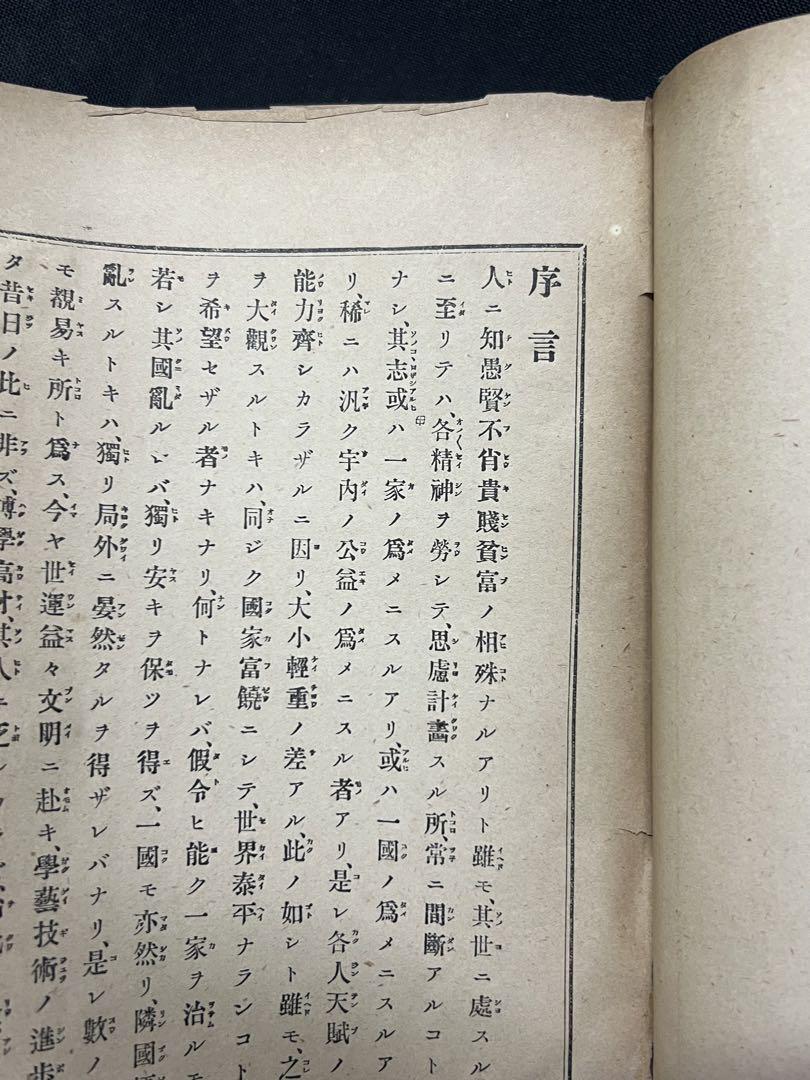 序言
人ニ知愚賢不肖貴賤貧富ノ相殊ナルアリト雖モ、其世ニ處スル
ニ至リテハ、各精神ヲ勞シテ、思慮計畫スル所、常ニ間斷アルコト
ナシ、其志或ハ一家ノ爲メニスルアリ、或ハ一國ノ爲メニスルア
リ、稀ニハ汎ク宇内ノ公益ノ爲メニスル者アリ、是レ各人天賦ノ
能力齊シカラザルニ因リ、大小輕重ノ差アル、此ノ如シト雖モ、之
ヲ大觀スルトキハ、同ジク國家富饒ニシテ、世界泰平ナランコト
ヲ希望セザル者ナキナリ、何トナレバ、假令ヒ能ク一家ヲ治ルモ
若シ其國亂ルレバ、獨リ安キヲ保ツヲ得ズ、一國モ亦然リ、隣國
亂スルトキハ、獨リ局外ニ晏然タルヲ得ザレバナリ、是レ數ノ
モ覩易キ所ト爲ス、今ヤ世運益々文明ニ赴キ、學藝技術ノ進歩
タ昔日ノ此ニ非ズ、博學高才、其人ニ乏シ